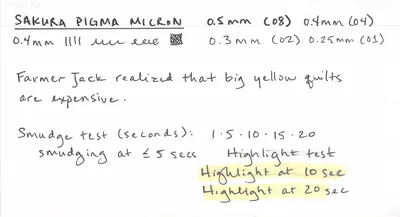 SAKURA PIGMA MICRON 0.5mm (08) 0.4mm (04)
0.4mm 0.3mm (02) 0.25mm (01)
Farmer Jack realized that big yellow quilts
are expensive.
Smudge test (seconds): 1·5·10·15·20
smudging at ≤ 5 secs Highlight test
Highlight at 10 sec
Highlight at 20 sec